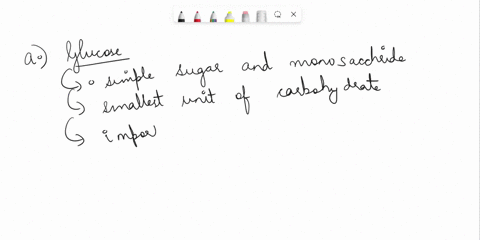 a.) Glucose
simple sugar and monosaccheride
smallest unit of carbohydrate
impor